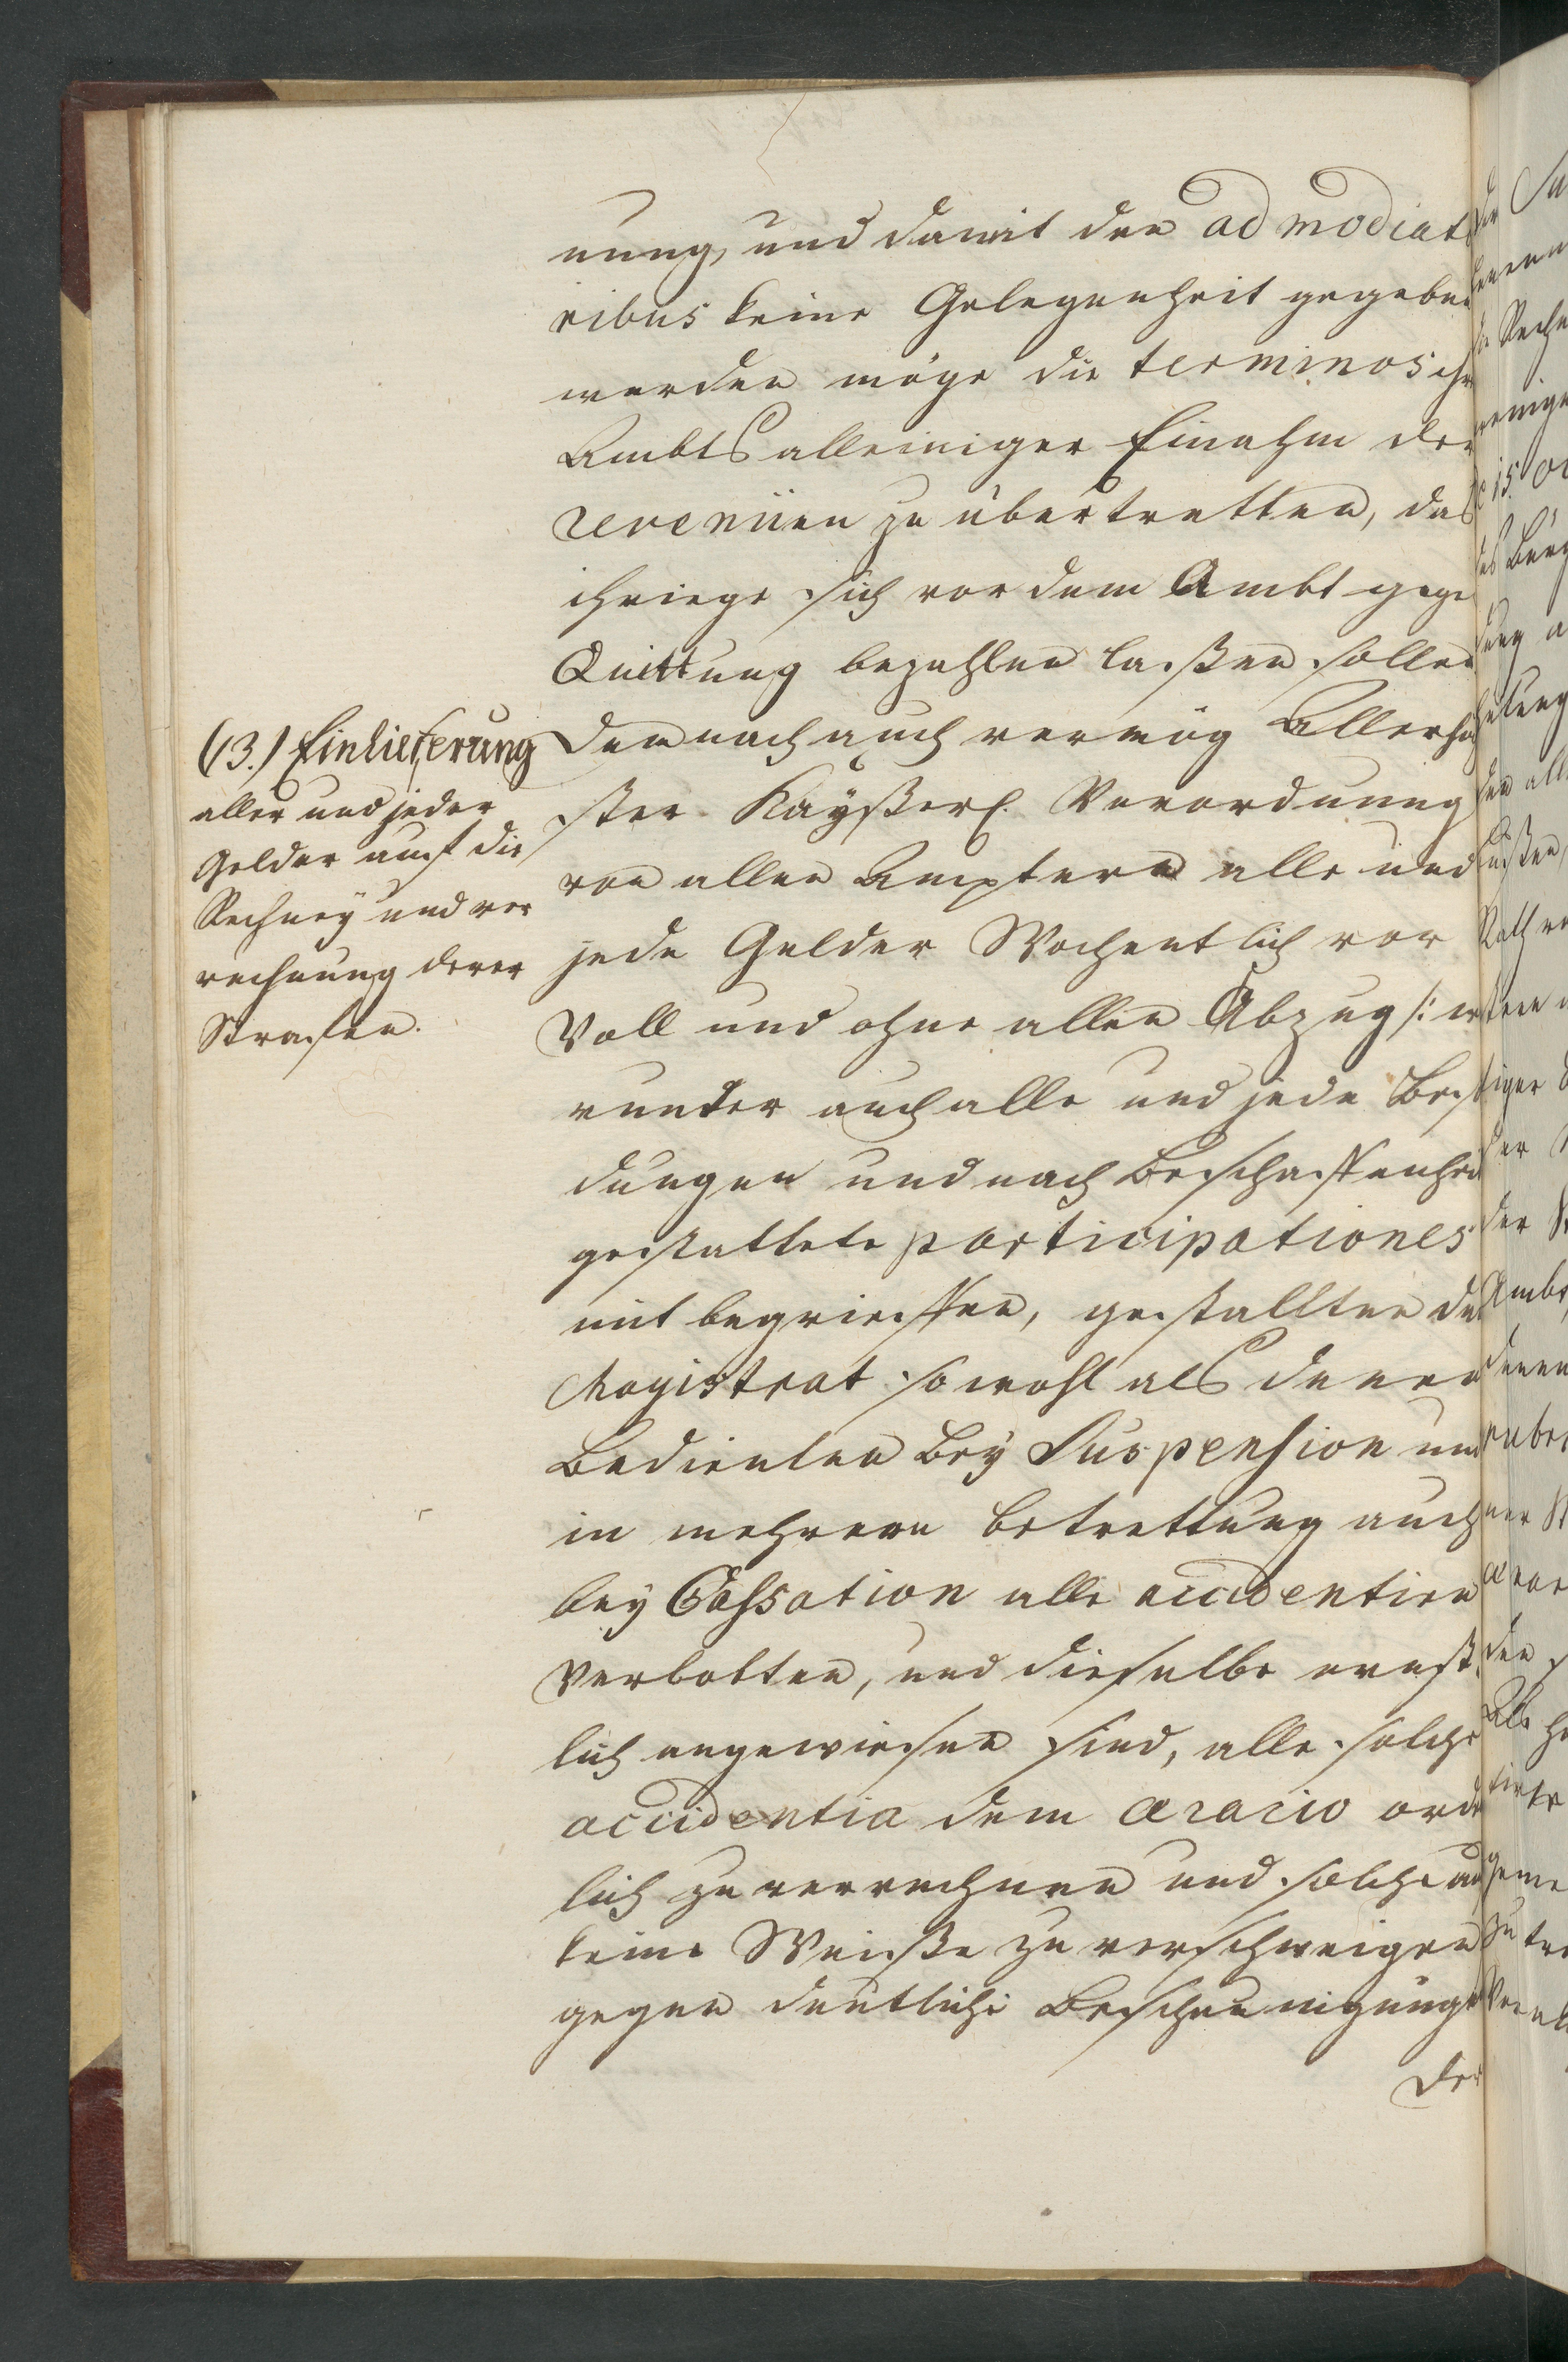 nung, und damit den admodiato
ribus keine Gelegenheit gegeben
werden möge die terminos ihr
Ambts alleiniger Einahm der
revenüen zu übertretten, das
ihriege sich vor dem Ambt gege
Quittung bezahlen laßen sollen
(13.) Einlieferung
aller und jeder
Gelder auf die
Rechney und ver
rechnung derer
Strafen.
Dem nach auch vermög Allerhöch
ster Kayßerl. Verordnung
von allen Ämptern alle und
jede Gelder Wochentlich vor
Voll und ohne allen Abzug /: wor
runter auch alle und jede Besol
dungen und nach Beschaffenheit
gestattete participationes
mit begrieffen, gestallten dem
Magistrat so wohl als denen
Bedienten bey Suspension und
in mehrern betrettung auch
bey Cassation alle accidentien
Verbotten, und dieselbe ernst
lich angewiesen sind, alle solche
accidentia dem aerario ordent
lich zu verrechnen und solche auf
keine Weiße zu verschweigen
gegen deutliche Bescheinigunge
der